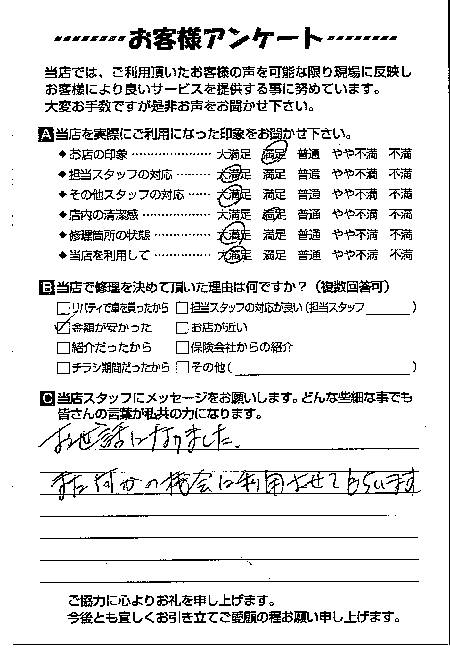 お客様アンケート
当店では、ご利用頂いたお客様の声を可能な限り現場に反映し
お客様により良いサービスを提供する事に努めています。
大変お手数ですが是非お声をお聞かせ下さい。
A 当店を実際にご利用になった印象をお聞かせ下さい。
◆お店の印象 大満足 満足 普通 やや不満 不満
◆担当スタッフの対応 大満足 満足 普通 やや不満 不満
◆その他スタッフの対応 大満足 満足 普通 やや不満 不満
◆店内の清潔感 大満足 満足 普通 やや不満 不満
◆修理箇所の状態 大満足 満足 普通 やや不満 不満
◆当店を利用して 大満足 満足 普通 やや不満 不満
B 当店で修理を決めて頂いた理由は何ですか？（複数回答可）
リバティで車を買ったから 担当スタッフの対応が良い（担当スタッフ ）
金額が安かった お店が近い
紹介だったから 保険会社からの紹介
チラシ期間だったから その他（ ）
C 当店スタッフにメッセージをお願いします。どんな些細な事でも
皆さんの言葉が私共の力になります。
お世話になりました。
また何かの機会に利用させてもらいます
ご協力に心よりお礼を申し上げます。
今後とも宜しくお引き立てご愛顧の程お願い申し上げます。